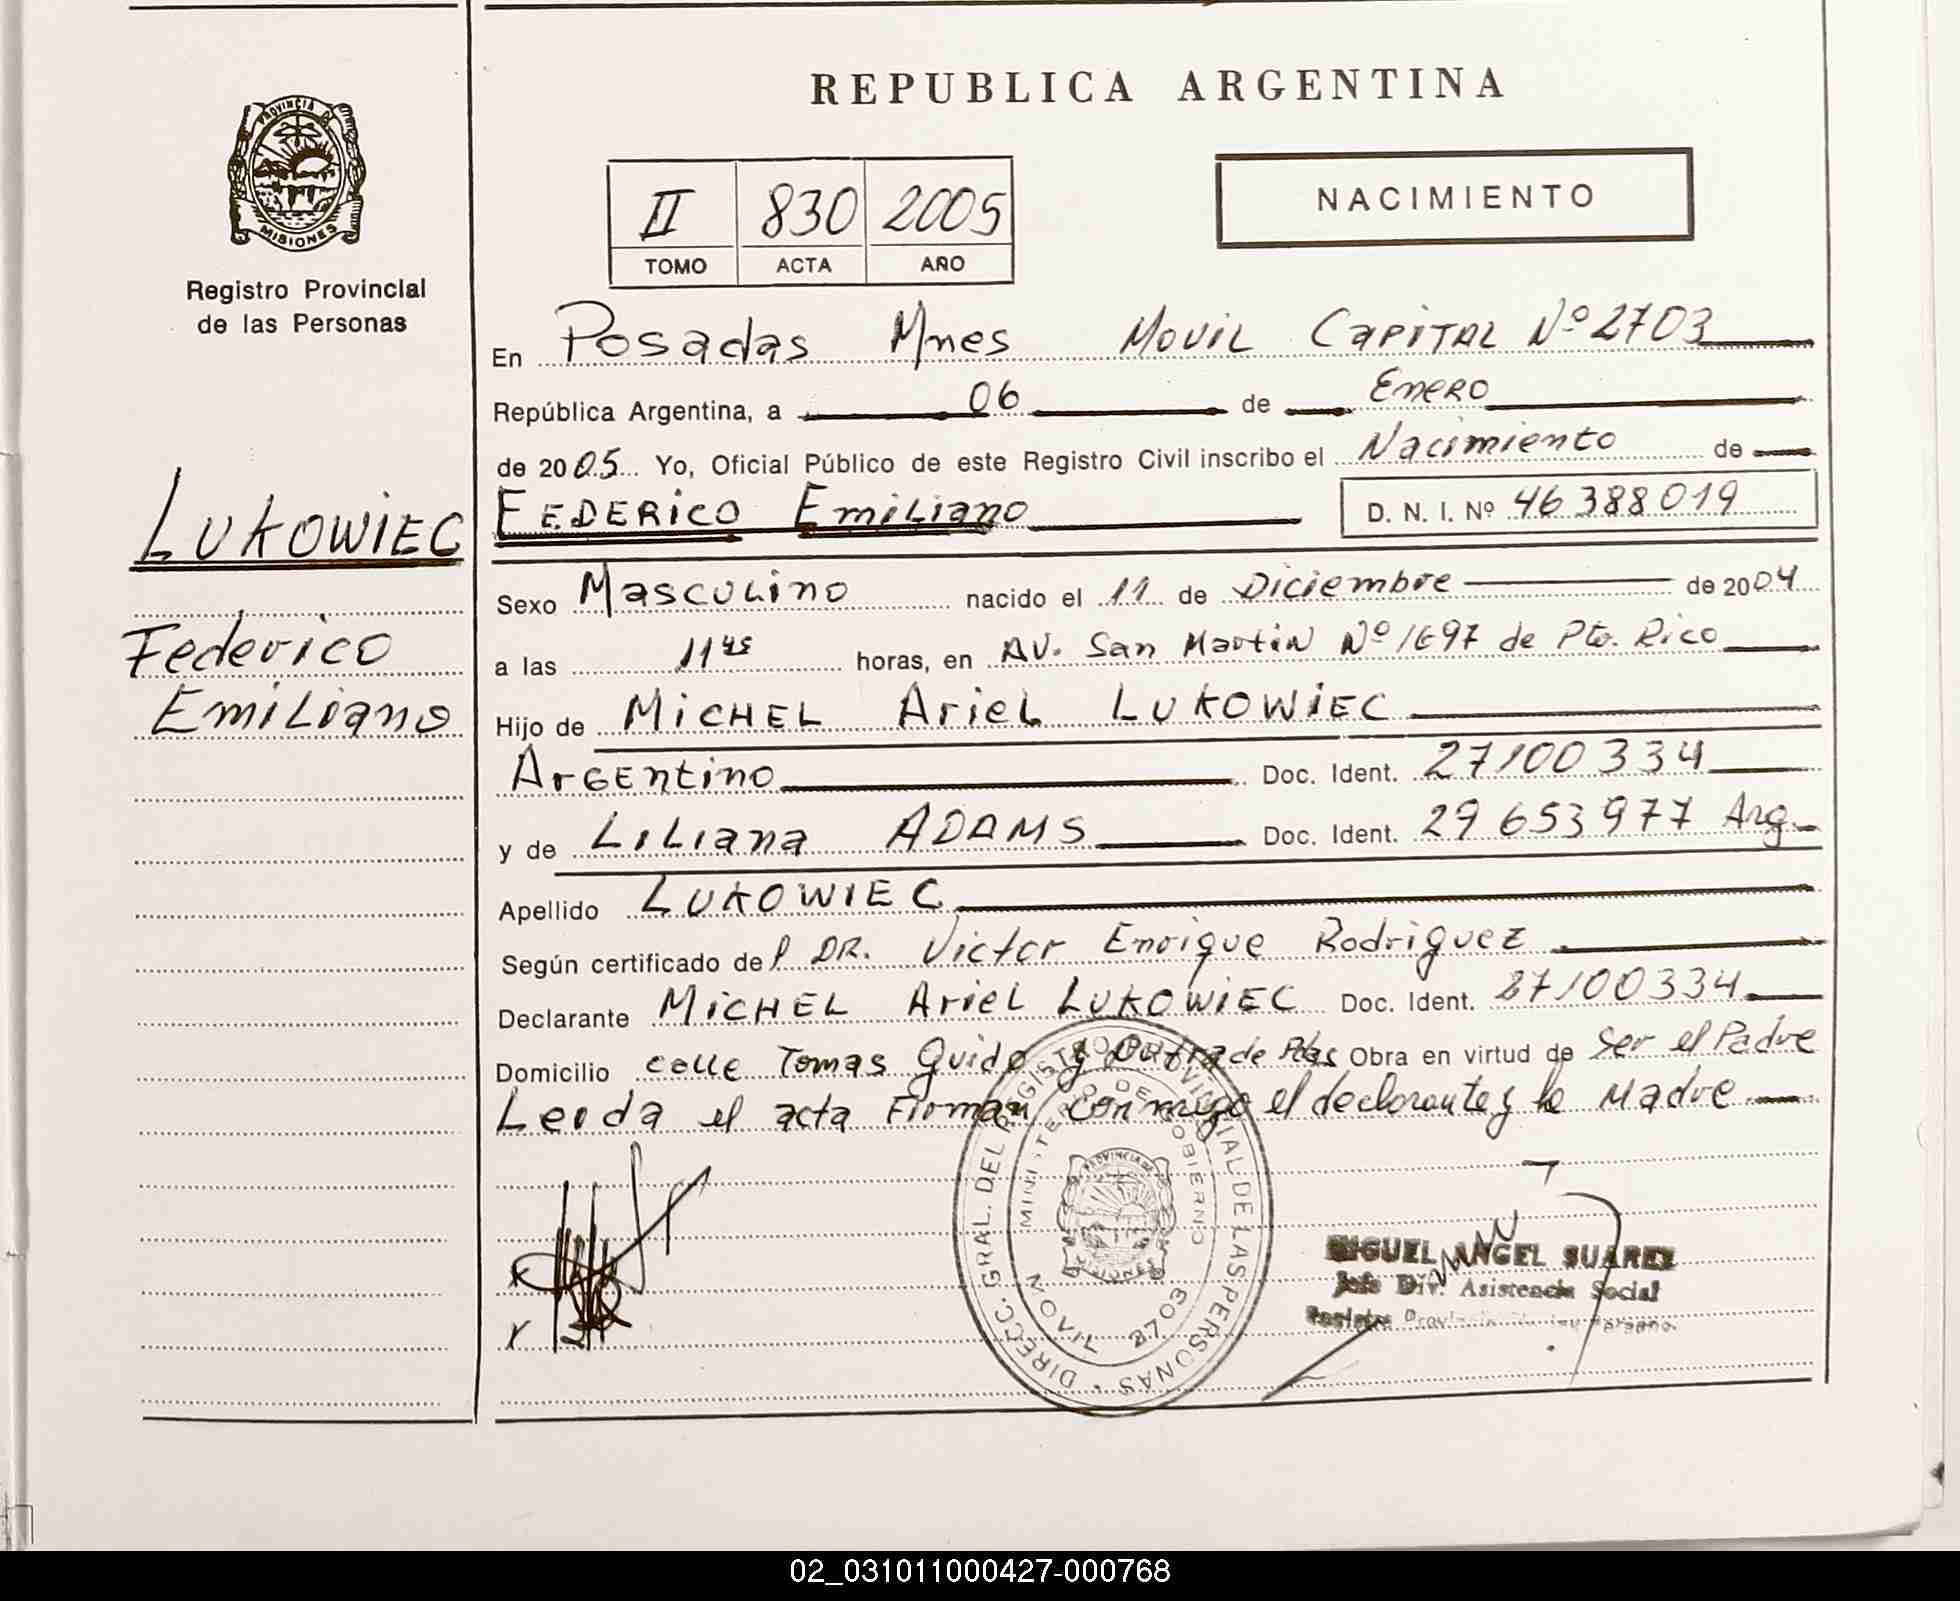 REPUBLICA ARGENTINA
PROVINCIA DE
MISIONES
Registro Provincial
de las Personas
II 830 2005
TOMO ACTA AÑO
NACIMIENTO
En Posadas Mnes Movil Capital Nº 2703
República Argentina, a 06 de Enero
de 2005 Yo, Oficial Público de este Registro Civil inscribo el Nacimiento de
LUKOWIEC
Federico
Emiliano
FEDERICO Emiliano D. N. I. Nº 46 388 019
Sexo Masculino nacido el 11 de Diciembre de 2004
a las 11 45 horas, en AV. San Martin Nº 1697 de Pto. Rico
Hijo de MICHEL Ariel LUKOWIEC
Argentino Doc. Ident. 27100334
y de Liliana ADAMS Doc. Ident. 29 653 977 Arg.
Apellido LUKOWIEC
Según certificado del DR. Victor Enrique Rodriguez
Declarante MICHEL Ariel LUKOWIEC Doc. Ident. 27100334
Domicilio calle Tomas Guido y de Pdas Obra en virtud de Ser el Padre
Leida el acta Firman conmigo el declarante y la Madre
DIRECC. GRAL. DEL REGISTRO PROVINCIAL DE LAS PERSONAS
MINISTERIO DE GOBIERNO
PROVINCIA DE
MISIONES
MOVIL 2703
MIGUEL ANGEL SUAREZ
Jefe Div. Asistencia Social
Registro Provincial de las Personas
02_031011000427-000768